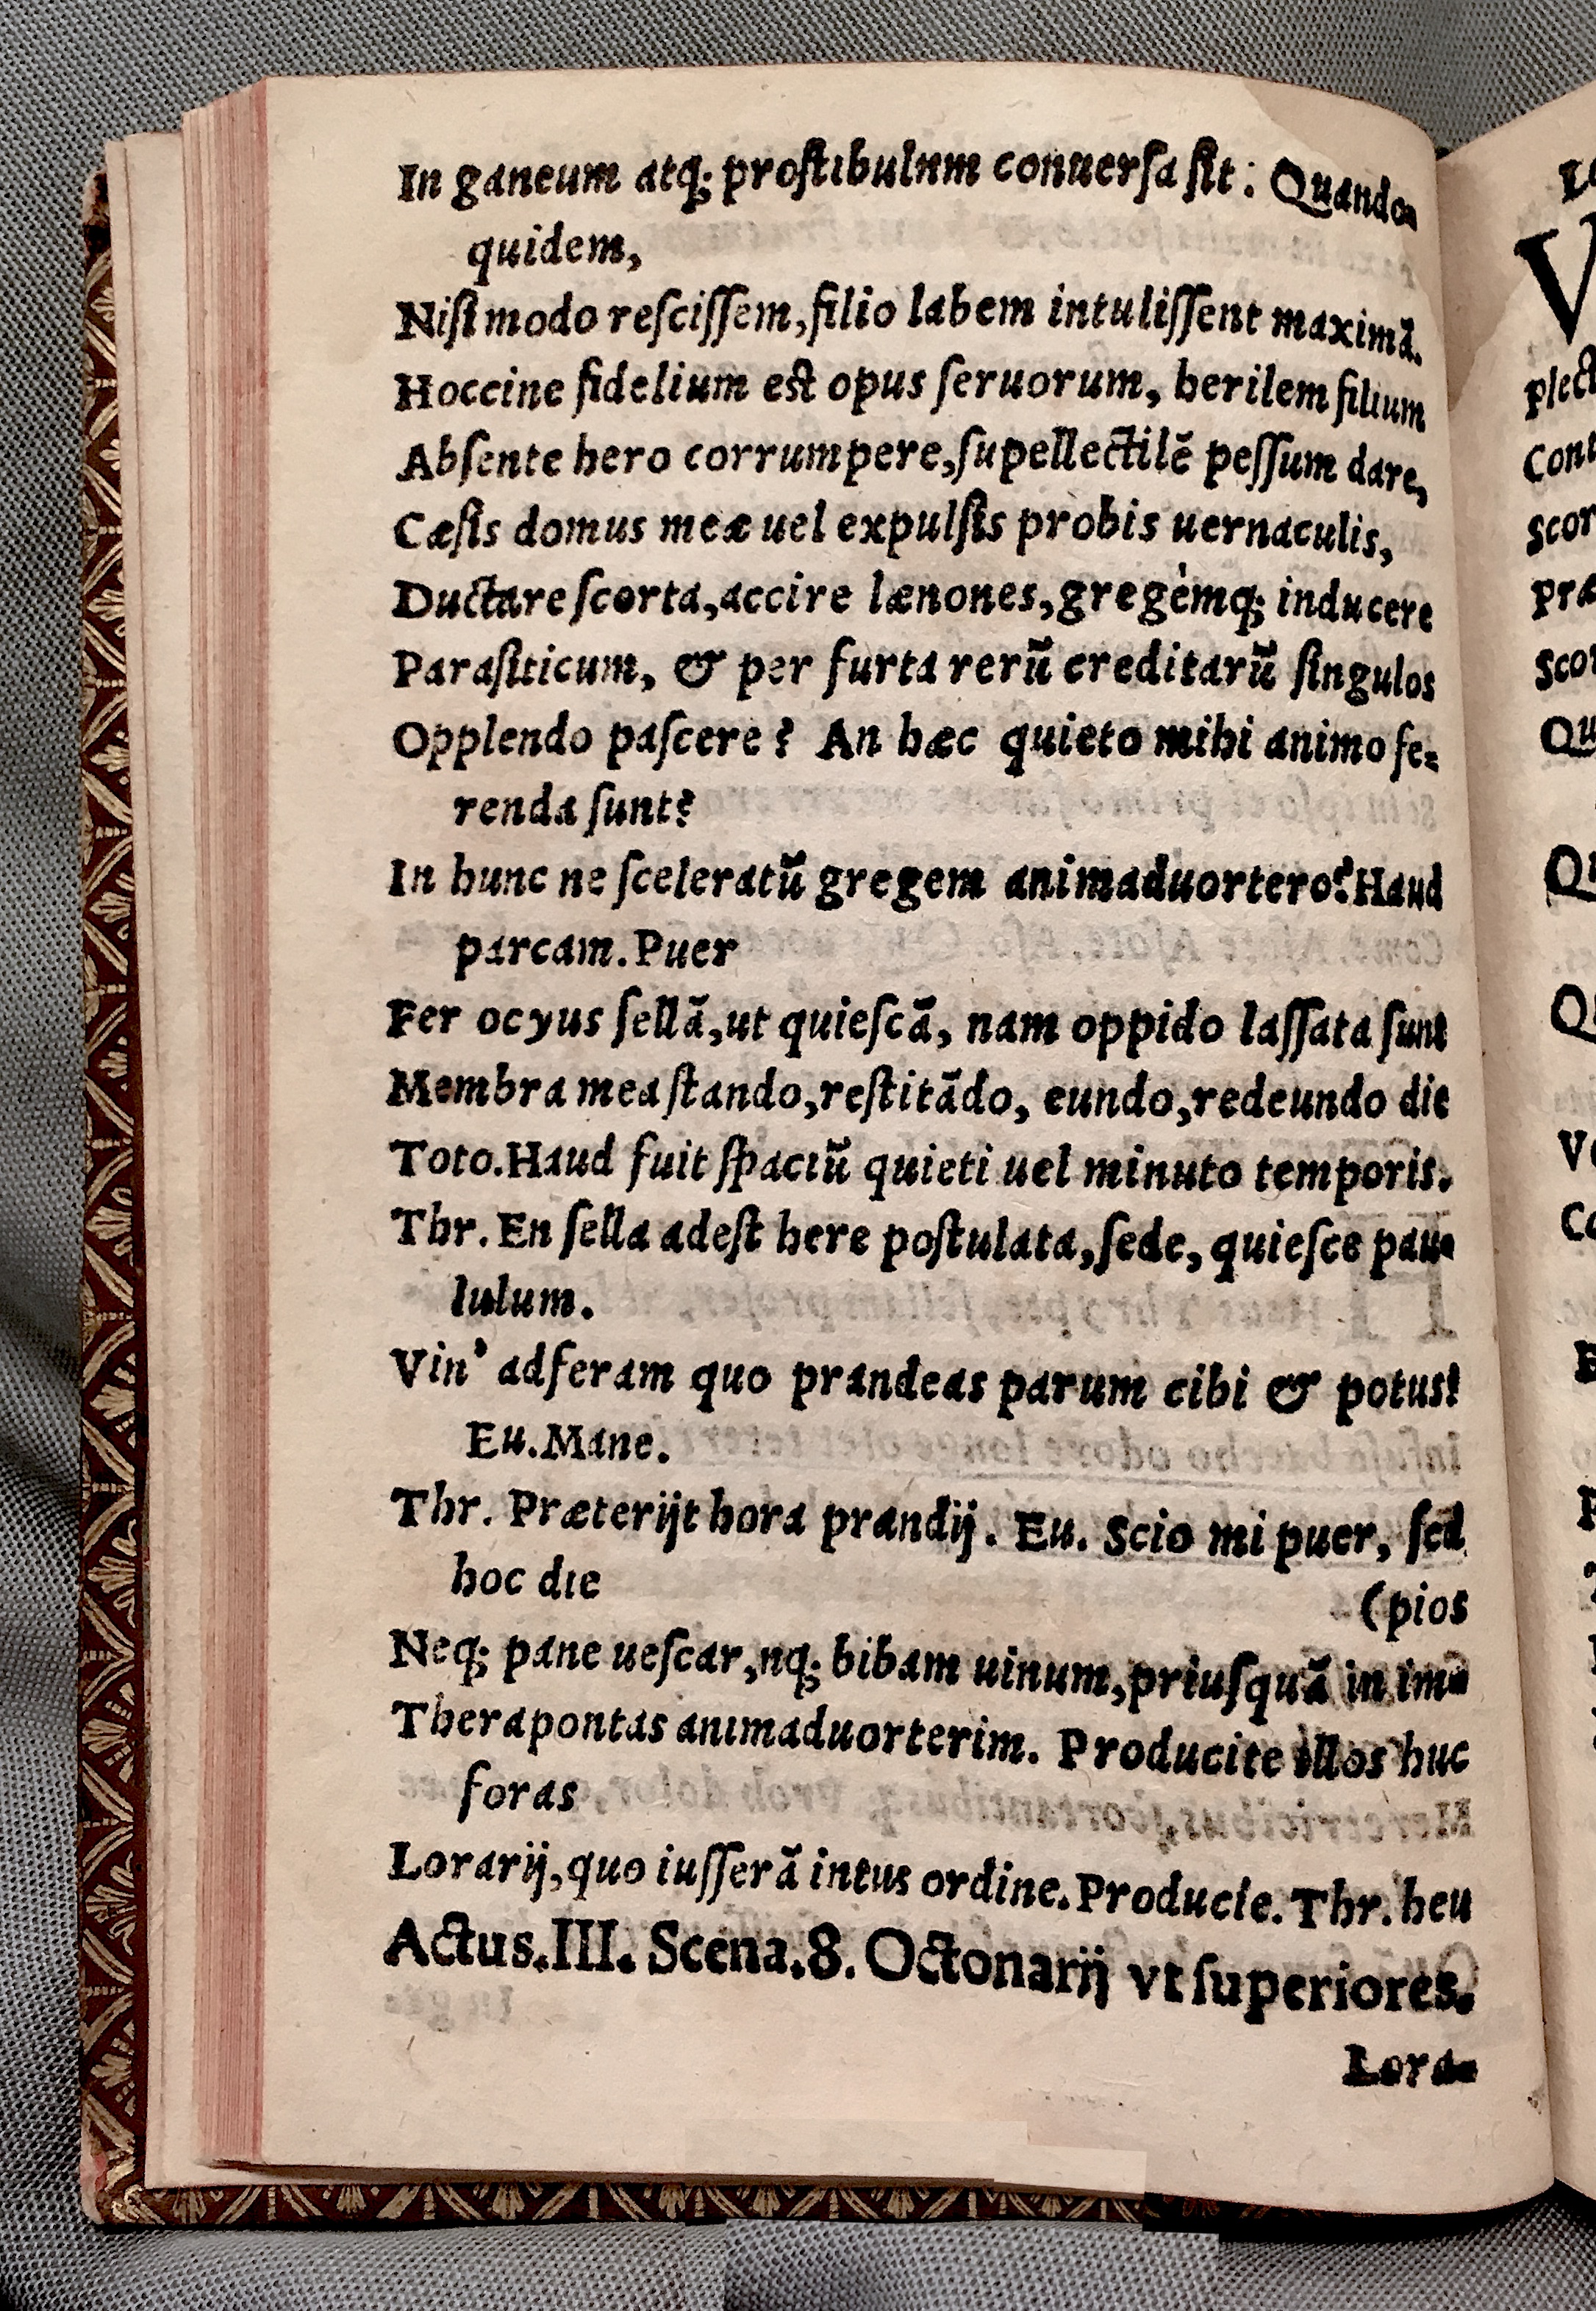 In ganeum atq; proſtibulum conuerſa ſit: Quando-
quidem,
Niſi modo reſciſſem, filio labem intuliſſent maximā.
Hoccine fidelium eſt opus ſeruorum, herilem filium
Abſente hero corrumpere, ſupellectilē peſſum dare,
Cæſis domus meæ uel expulſis probis uernaculis,
Ductare ſcorta, accire lænones, gregèmq; inducere
Paraſiticum, & per furta rerū creditarū ſingulos
Opplendo paſcere? An hæc quieto mihi animo fe-
renda ſunt?
In hunc ne ſceleratū gregem animaduortero? Haud
parcam. Puer
Fer ocyus ſellā, ut quieſcā, nam oppido laſſata ſunt
Membra mea ſtando, reſtitādo, eundo, redeundo die
Toto. Haud fuit ſpaciū quieti uel minuto temporis.
Thr. En ſella adeſt here poſtulata, ſede, quieſce pau-
lulum.
Vin' adferam quo prandeas parum cibi & potus?
Eu. Mane.
Thr. Præterijt hora prandij. Eu. Scio mi puer, ſed
hoc die (pios
Neq; pane ueſcar, nq; bibam uinum, priuſquā in im-
Therapontas animaduorterim. Producite illos huc
foras
Lorarij, quo iuſſerā intus ordine. Producite. Thr. heu
Actus. III. Scena. 8. Octonarij vt ſuperiores.
Lora-
V
plect
Scor
Præ
Scor
Qu